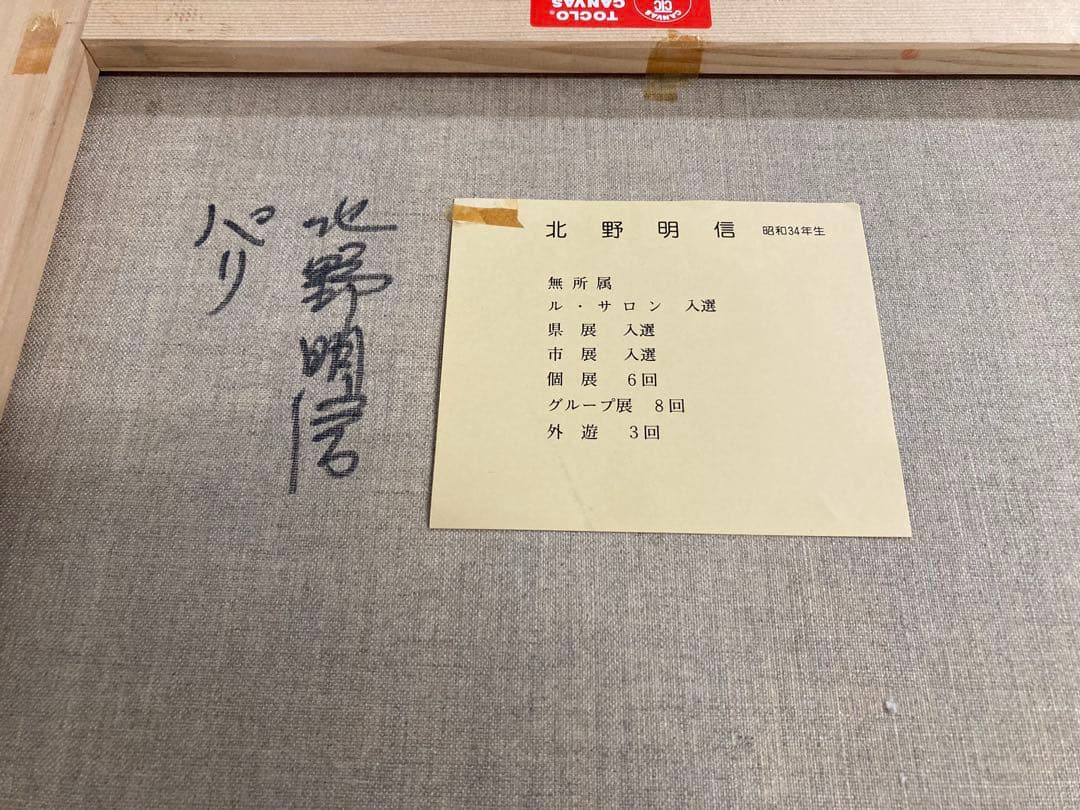 TOCLO®
CANVAS
CANVAS
CIC
北野明信
パリ
北野明信 昭和34年生
無所属
ル・サロン 入選
県展 入選
市展 入選
個展 6回
グループ展 8回
外遊 3回